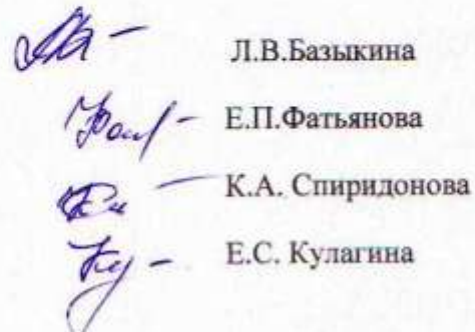 Л.В.Базыкина
Е.П.Фатьянова
К.А. Спиридонова
Е.С. Кулагина